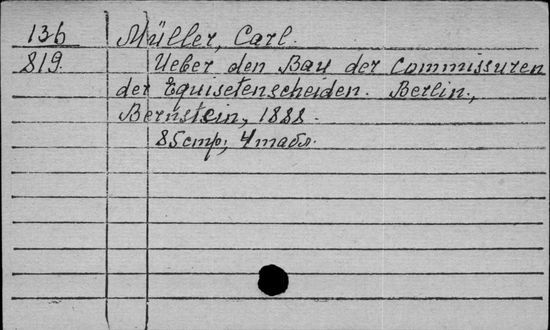 136 Müller, Carl.
819. Ueber den Bau der Commissuren
der Equisetenscheiden. Berlin.,
Bernstein, 1888.
85стр; 4табл.